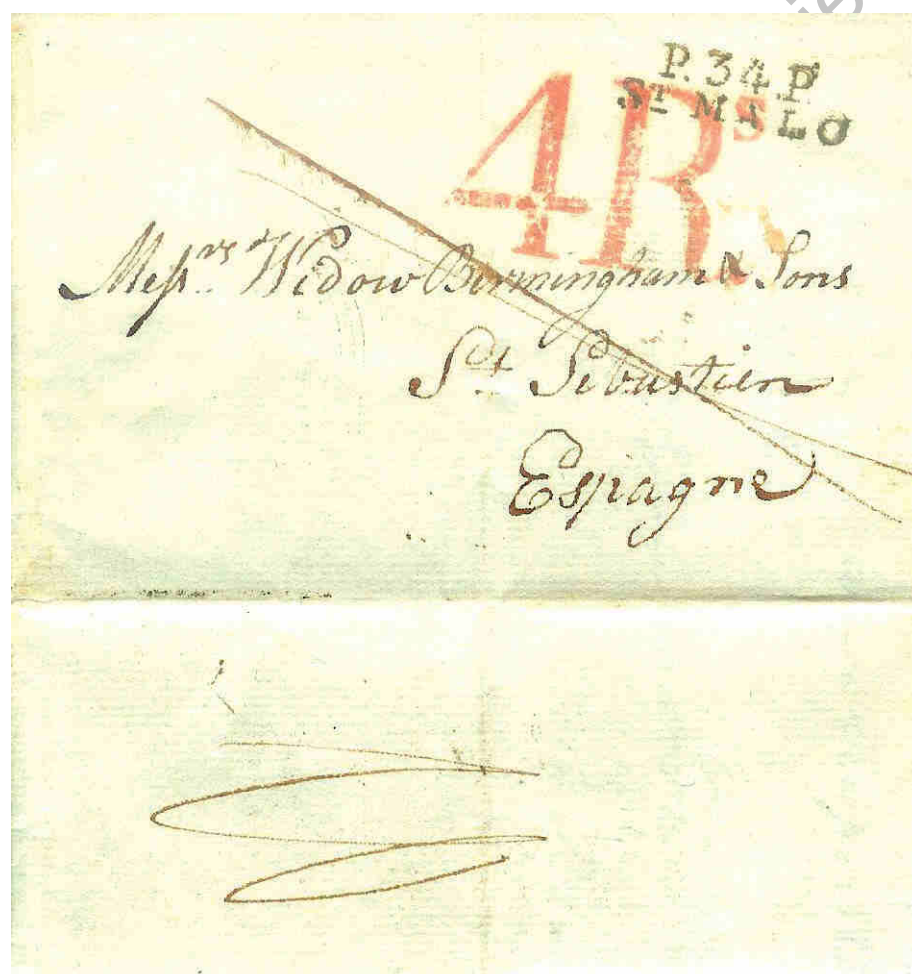 P.34.P
ST MALO
4Rs
Messrs Widow Birmingham & Sons
St Sebastien
Espagne